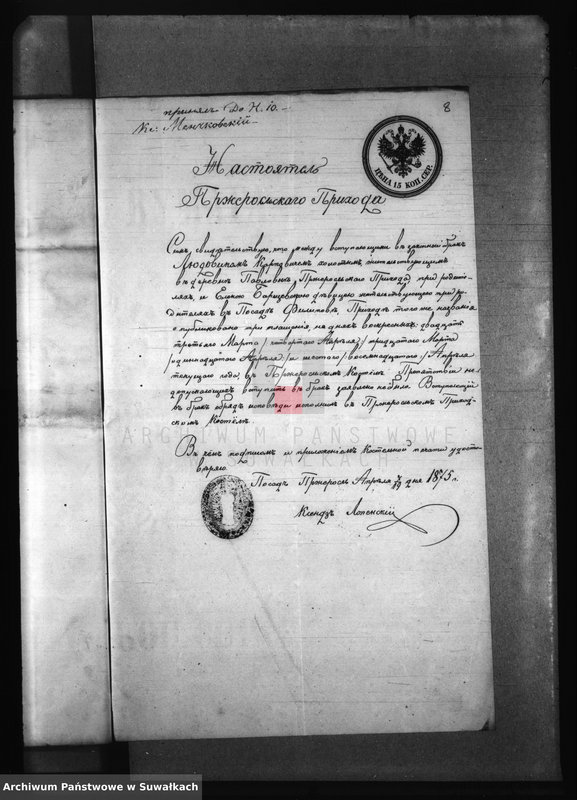 принялъ До Н. 10.
Кс: Менчковскій
8
ЦѢНА 15 КОП. СЕР.
Настоятель
Пржеросльскаго Прихода
Симъ свидѣтельствую, что между вступающими въ законный бракъ
Людовикомъ холостымъ, жительствующимъ
въ деревнѣ Павловкѣ, Пржеросльскаго Прихода при родите-
ляхъ, и Еленою дѣвицею жительствующею при ро-
дителяхъ въ Посадѣ Филиповѣ, Прихода того же названія
опубликовано три оглашенія, въ дняхъ воскресныхъ: двадцать
третьяго Марта /четвертаго Апрѣля/ тридцатаго Марта
/одиннадцатаго Апрѣля/ и шестаго /восемнадцатаго/ Апрѣля
текущаго года, въ Пржеросльскомъ Костелѣ. Препятствій не
допускающихъ вступить въ бракъ заявлено не было. Вступающій
въ бракъ обрядъ исповѣди исполнилъ въ Пржеросльскомъ Приход-
скомъ Костёлѣ.
ARCHIWUM PAŃSTWOWE
W SUWAŁKACH
Въ чёмъ подписомъ и приложеніемъ Костельной печати удосто-
вѣряю.
Посадъ Пржеросль Апрѣля 7/19 дня 1875 г.
Ксендзъ
Archiwum Państwowe w Suwałkach